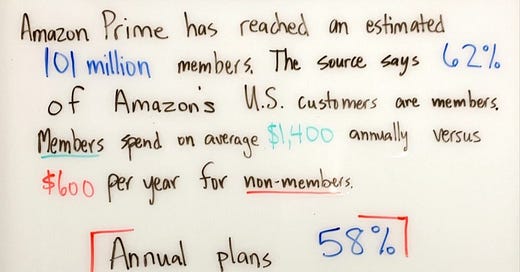 Amazon Prime has reached an estimated
101 million members. The source says 62%
of Amazon's U.S. customers are members.
Members spend on average $1,400 annually versus
$600 per year for non-members.
Annual plans 58%